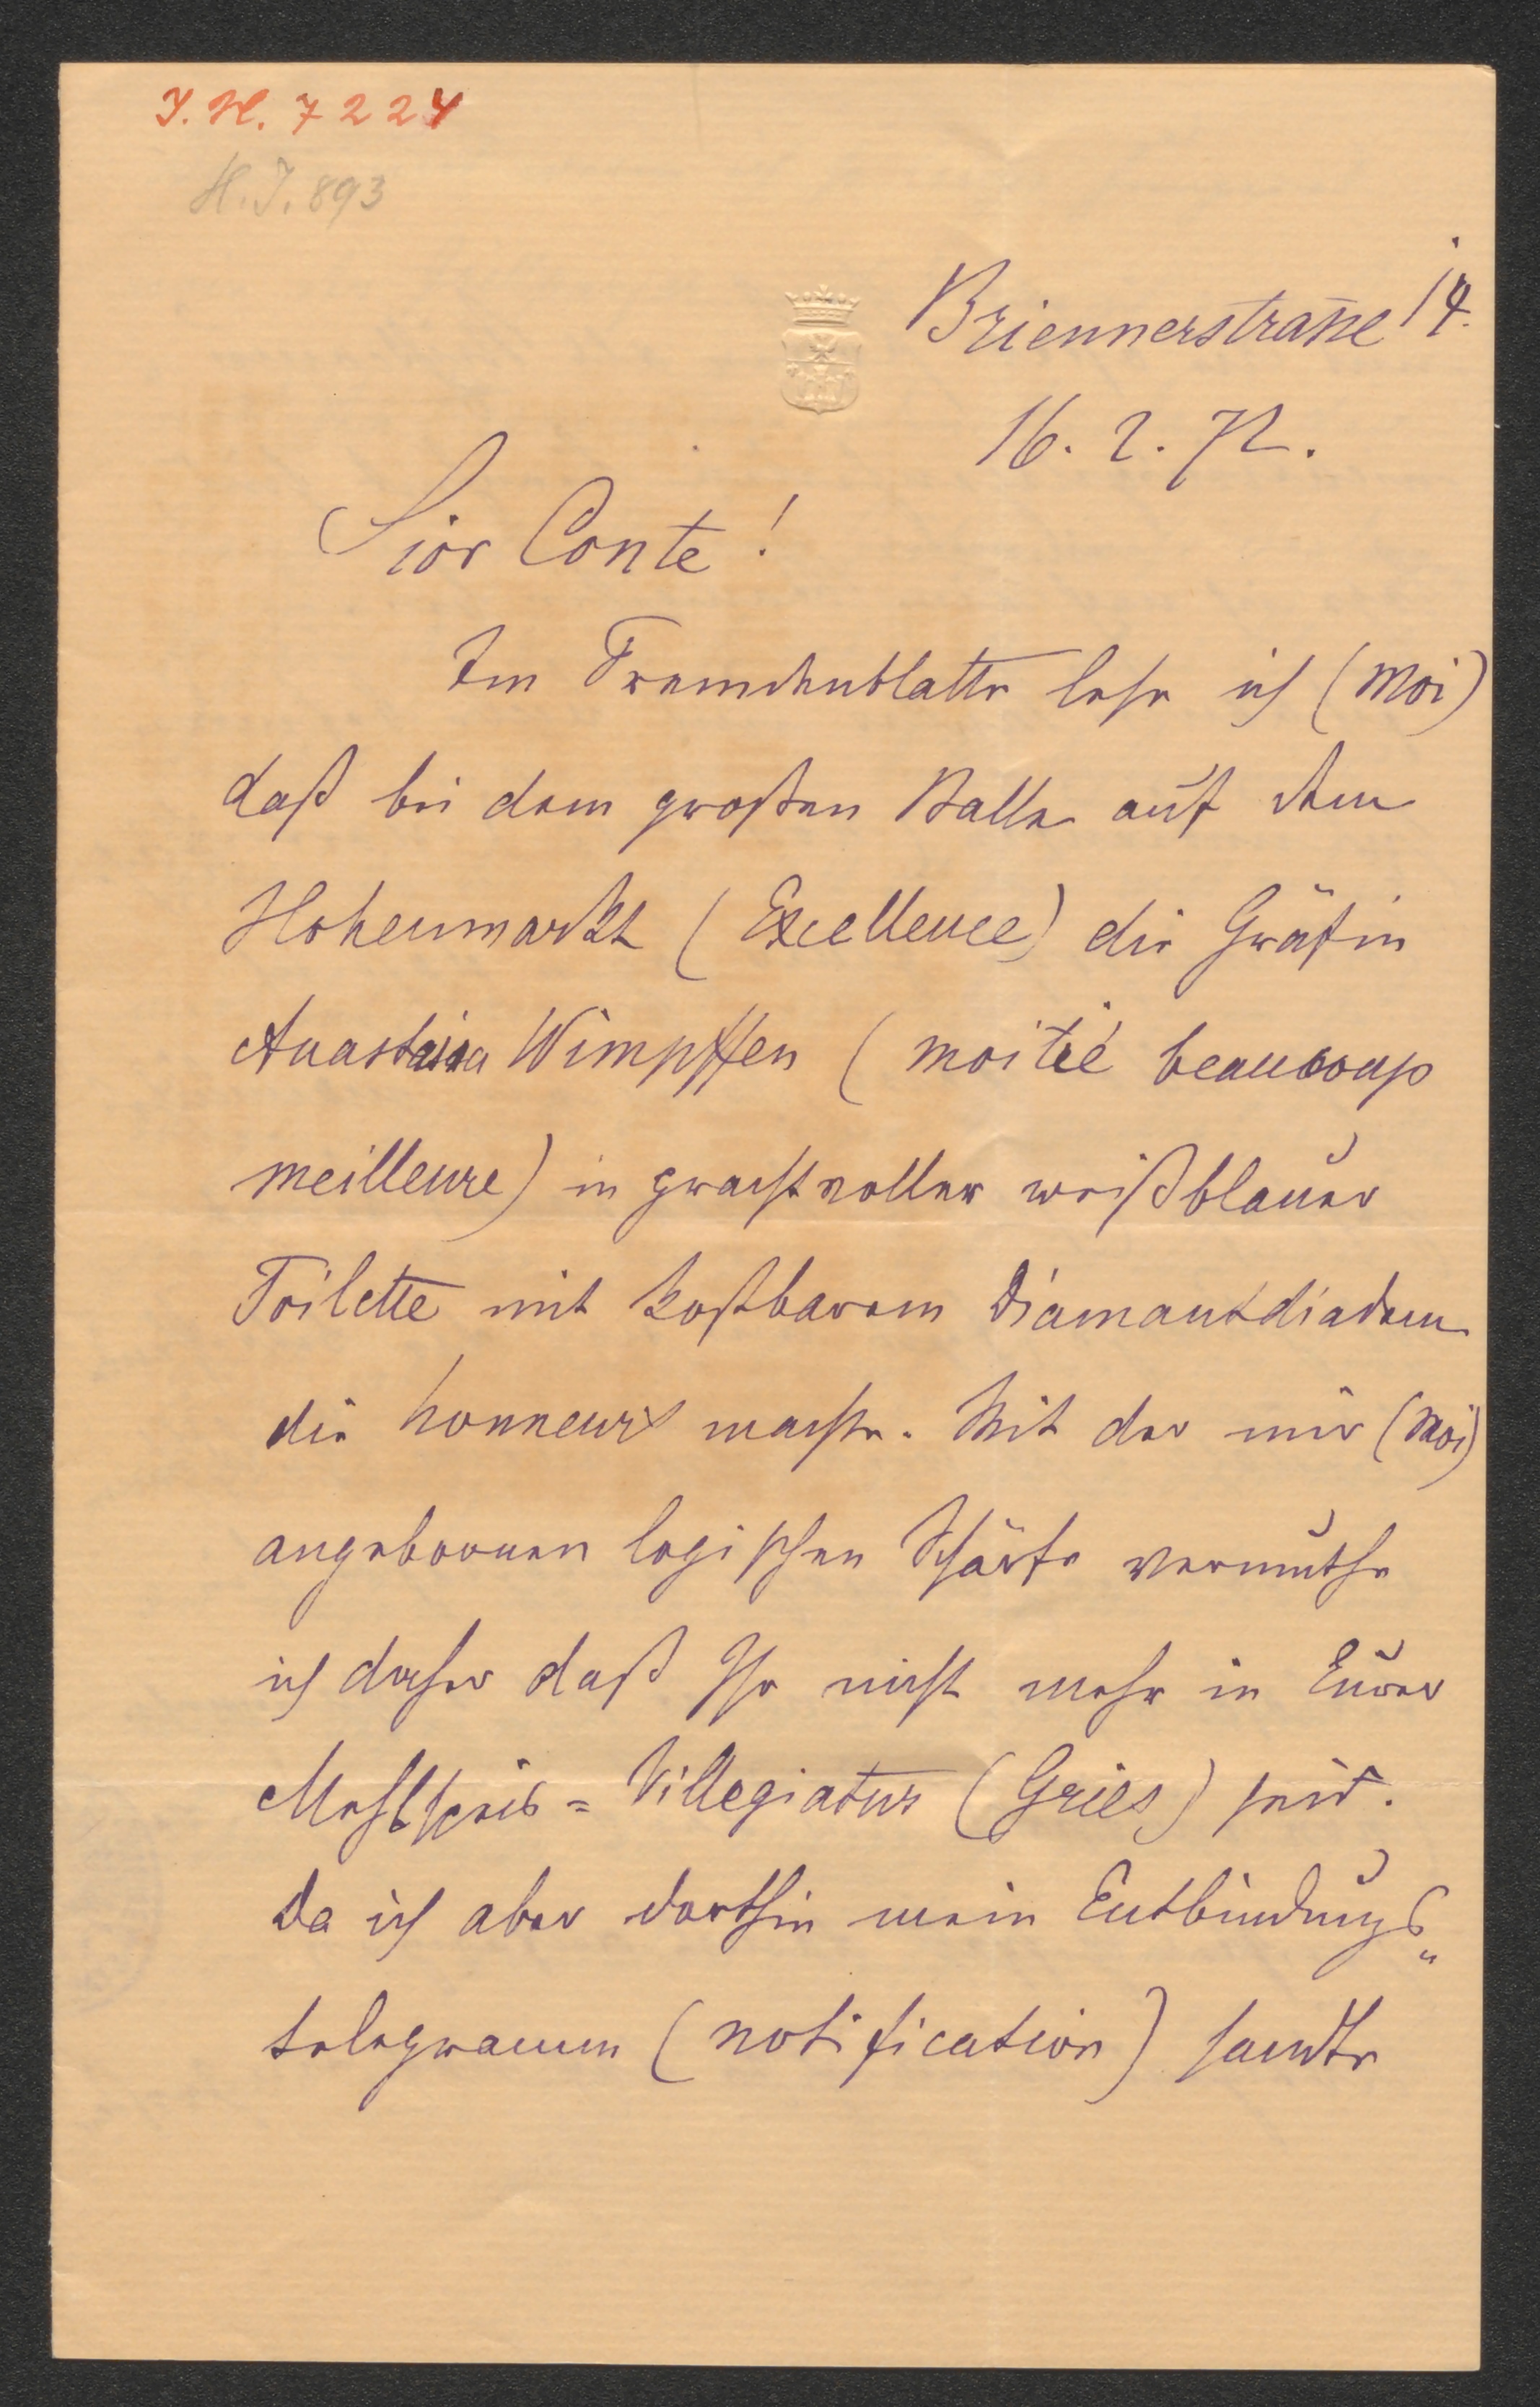 I. N. 7224
H. I. 893
Briennerstraße 14.
16. 2. 72.
Sior Conte!
Im Fremdenblatte lese ich (moi)
daß bei dem großen Balle auf dem
Hohenmarkt (Excellence) die Gräfin
Anastasia Wimpffen (moitié beaucoup
meilleure) in prachtvoller weißblauer
Toilette mit kostbarem Diamantdiadem
die honneurs machte. Mit der mir (moi)
angebornen logischen Schärfe vermuthe
ich daher daß Ihr nicht mehr in Eurer
Mehlspeis= Villegiatur (Gries) seid.
Da ich aber dorthin mein Entbindungs„
telegramm (notification) sandte